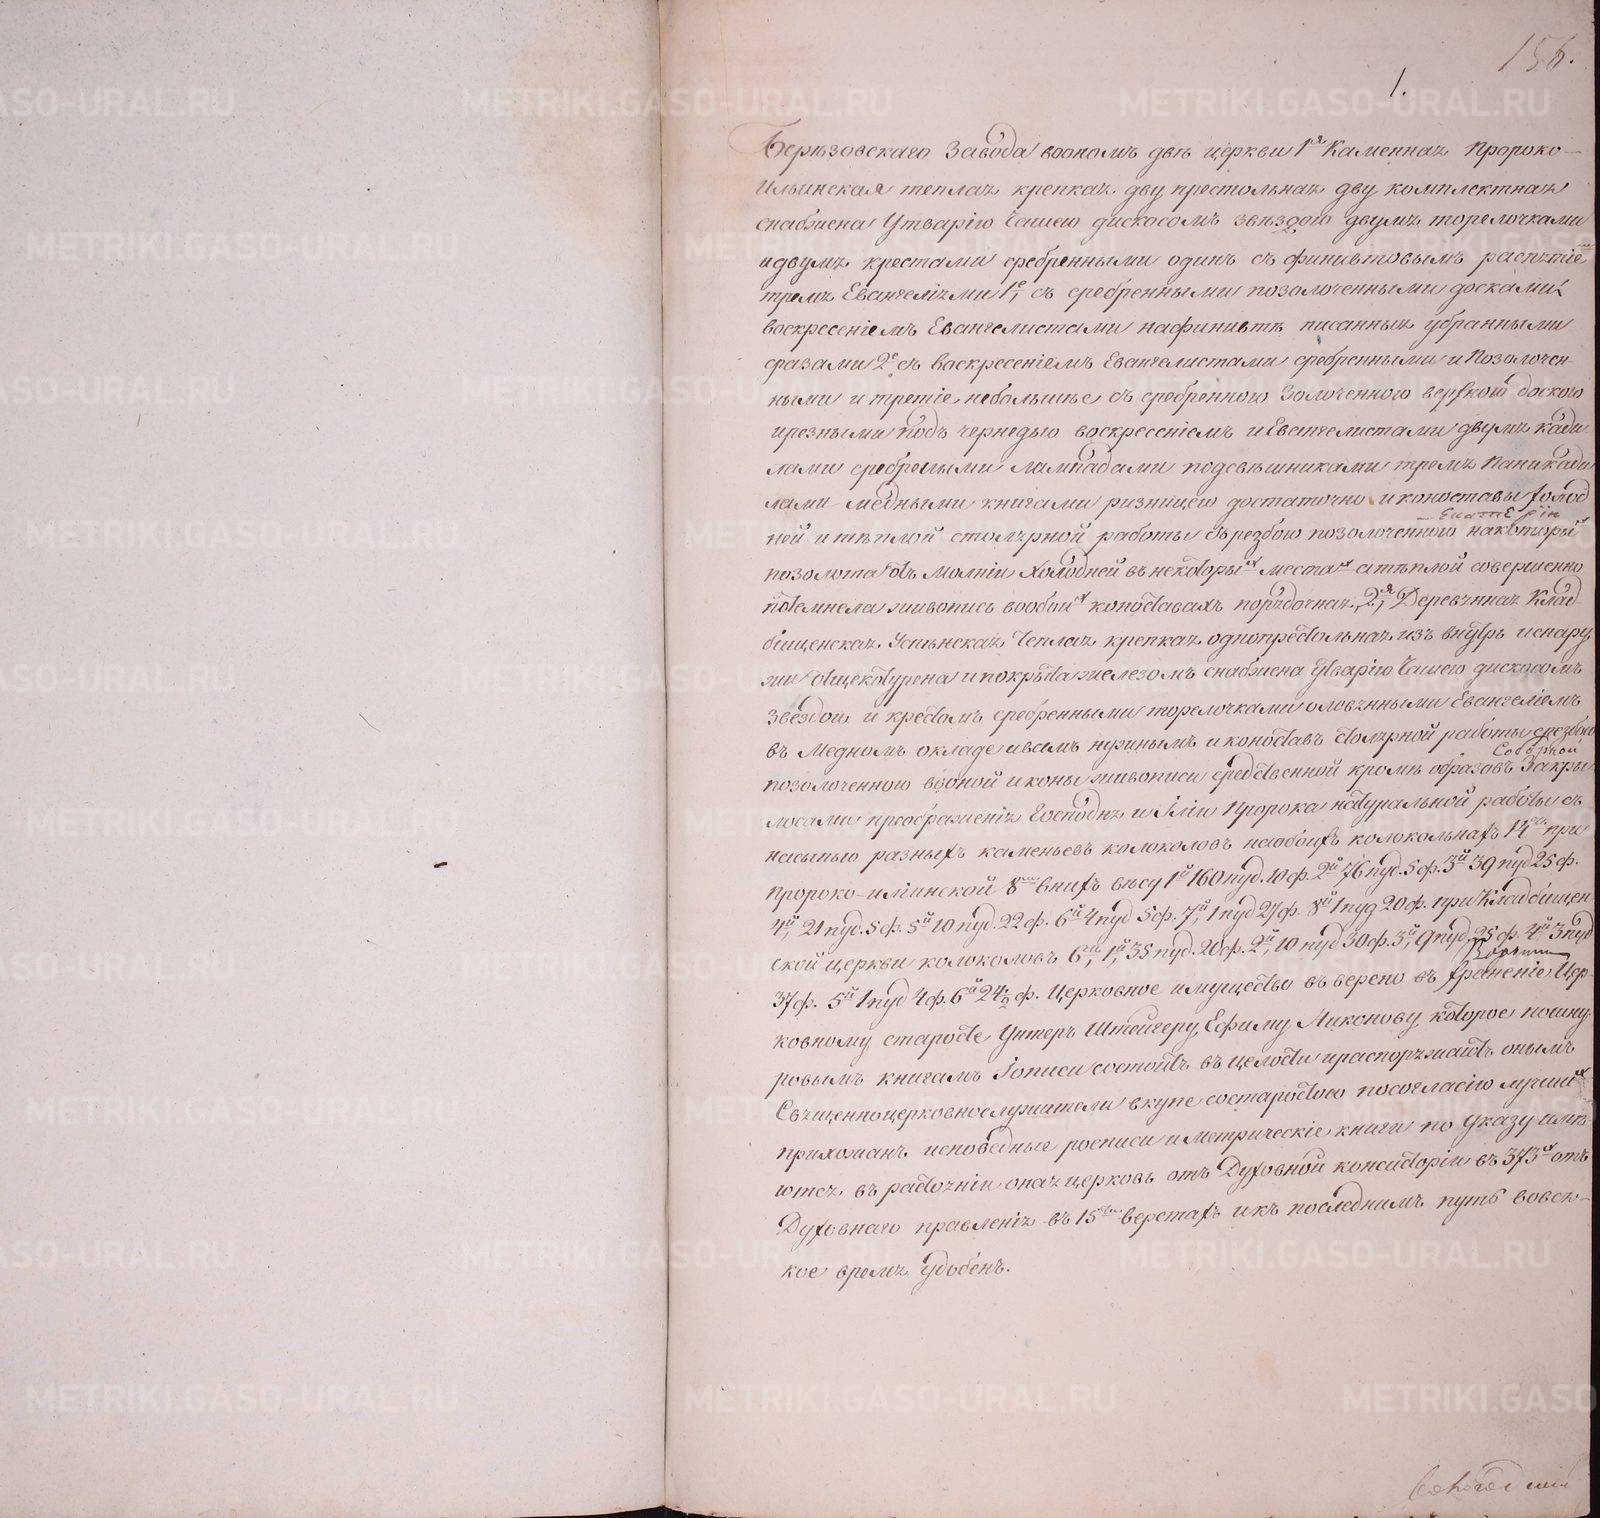 156.
1.
Берѣзовскаго Завода воономъ двѣ церкви 1я Каменная Пророко-
Ильинская теплая крепкая дву престольная дву комплектная
снабжена Утварію Чашею дискосомъ звѣздою двумя торелочками
и двумя крестами сребренными одинъ съ финивтовымъ распятіемъ
тремя Евангеліями 1е, съ сребренными позолоченными досками
воскресеніемъ Евангелистами нафинивтѣ писанныя убранными
сразами 2е съ воскресеніемъ Евангелистами сребренными и Позолочен-
ными и третіе небольшье съ сребренною Золоченною верхною доскою
ирезными подъ чернедью воскресеніемъ и Евангелистами двумя кади
лами сребреными лампадами подсвѣшниками тремя Паникади
лами медными книгами ризницею достаточно иконоставы холод
Екатерин
ней и тѣплой столярной работы съ резбою позолоченною накоторый
позолота отъ Молніи Холодней въ некоторыхъ местахъ атѣплой совершенно
потемнела живопись вообоихъ коноставахъ порядочная, 2я, Деревянная Клад-
бищенская Успѣнская Теплая крепкая однопрестольная изъ внутрь и снару
жи ощекотурена и покрыта железомъ снабжена Утварію Чашею дискосомъ
Звездой и крестомъ сребренными торелочками оловянными Евангеліемъ
въ Медномъ окладе и всемъ нужнымъ иконоставъ столярной работы срезбою
Соборной
позолоченною вооной иконы живописи средственной кромѣ образовъ Закры-
лосами преображенія Господня и Иліи Пророка натуральной работы съ
насыпью разныхъ каменьевъ колоколовъ наобоихъ колокольняхъ 14 при
Пророко-Илiинской 8 внихъ вѣсу 1й 160 пуд. 10 ф. 2й 76 пуд. 5 ф. 3й 39 пуд 25 ф.
4й, 21 пуд. 5 ф. 5й 10 пуд. 22 ф. 6й 4 пуд 5 ф. 7й, 1 пуд 27 ф. 8й 1 пуд 20 ф. при Кладбищен
ской церкви колоколовъ 6, 1й, 35 пуд. 20 ф. 2й, 10 пуд 30 ф. 3й, 9 пуд. 25 ф. 4й 3 пуд
37 ф. 5й 1 пуд 4 ф. 6й 24 1/2 ф. Церковное имущество въ верено въ храненіе Цер-
ковному старосте Унтеръ Штейгеру Ефиму Аиконову, которое пошну
ровымъ книгамъ Iописи состоитъ въ целости и распоряжаютъ онымъ
Священноцерковнослужители вкупе состаростою посогласію лучшихъ
прихожанъ исповедные росписи и метрическіе книги по Указу имѣ
ются въ растояніи оная церковь отъ Духовной консисторіи въ 373хъ отъ
Духовнаго правленія въ 15 верстахъ и къ последнимъ путь вовся-
кое время удобенъ.